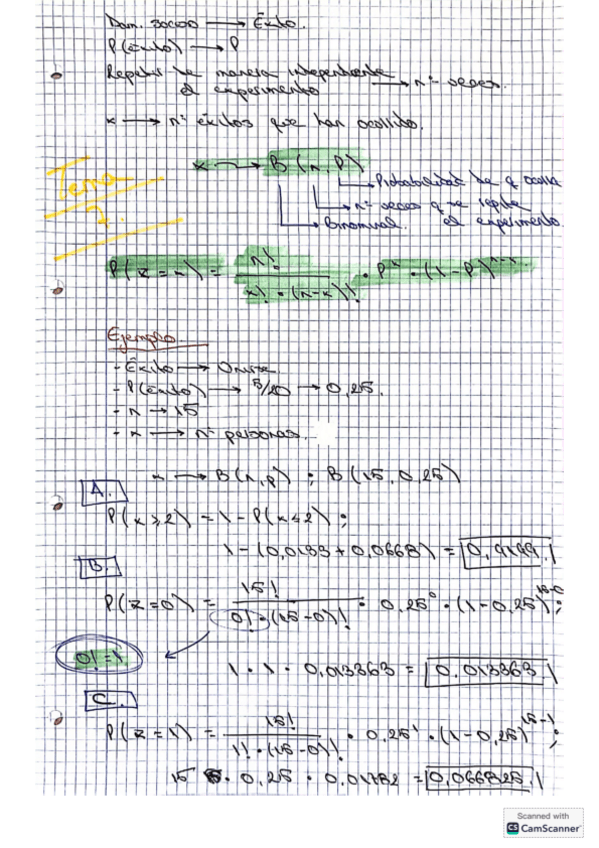 Dam. socoo → Éxito.
P(éxito) → P
Repetir de manera independiente
el experimento → nº veces.
x → nº éxitos que han ocurrido.
x → B(n, P)
Probabilidad de q ocurra
Tema
7.
nº veces q se repite
el experimento
Binomial.
P(z = x) = n! / x! · (n-x)! · P^x · (1-P)^n-x
Ejemplo
- Éxito →
- P(éxito) → 5/20 → 0,25.
- n → 15
- x → nº personas.
x → B(n,p) ; B(15, 0,25)
A.
P(x ≥ 2) = 1 - P(x < 2) ;
1 - (0,0133 + 0,0668) = 0,9199
B.
P(z = 0) = 15! / 0! · (15-0)! · 0,25^0 · (1-0,25)^15-0 ;
0! = 1
1 · 1 · 0,013363 = 0,013363
C.
P(z = 1) = 15! / 1! · (15-0)! · 0,25^1 · (1-0,25)^15-1 ;
15 · 0,25 · 0,01782 = 0,066825
Scanned with
CS CamScanner